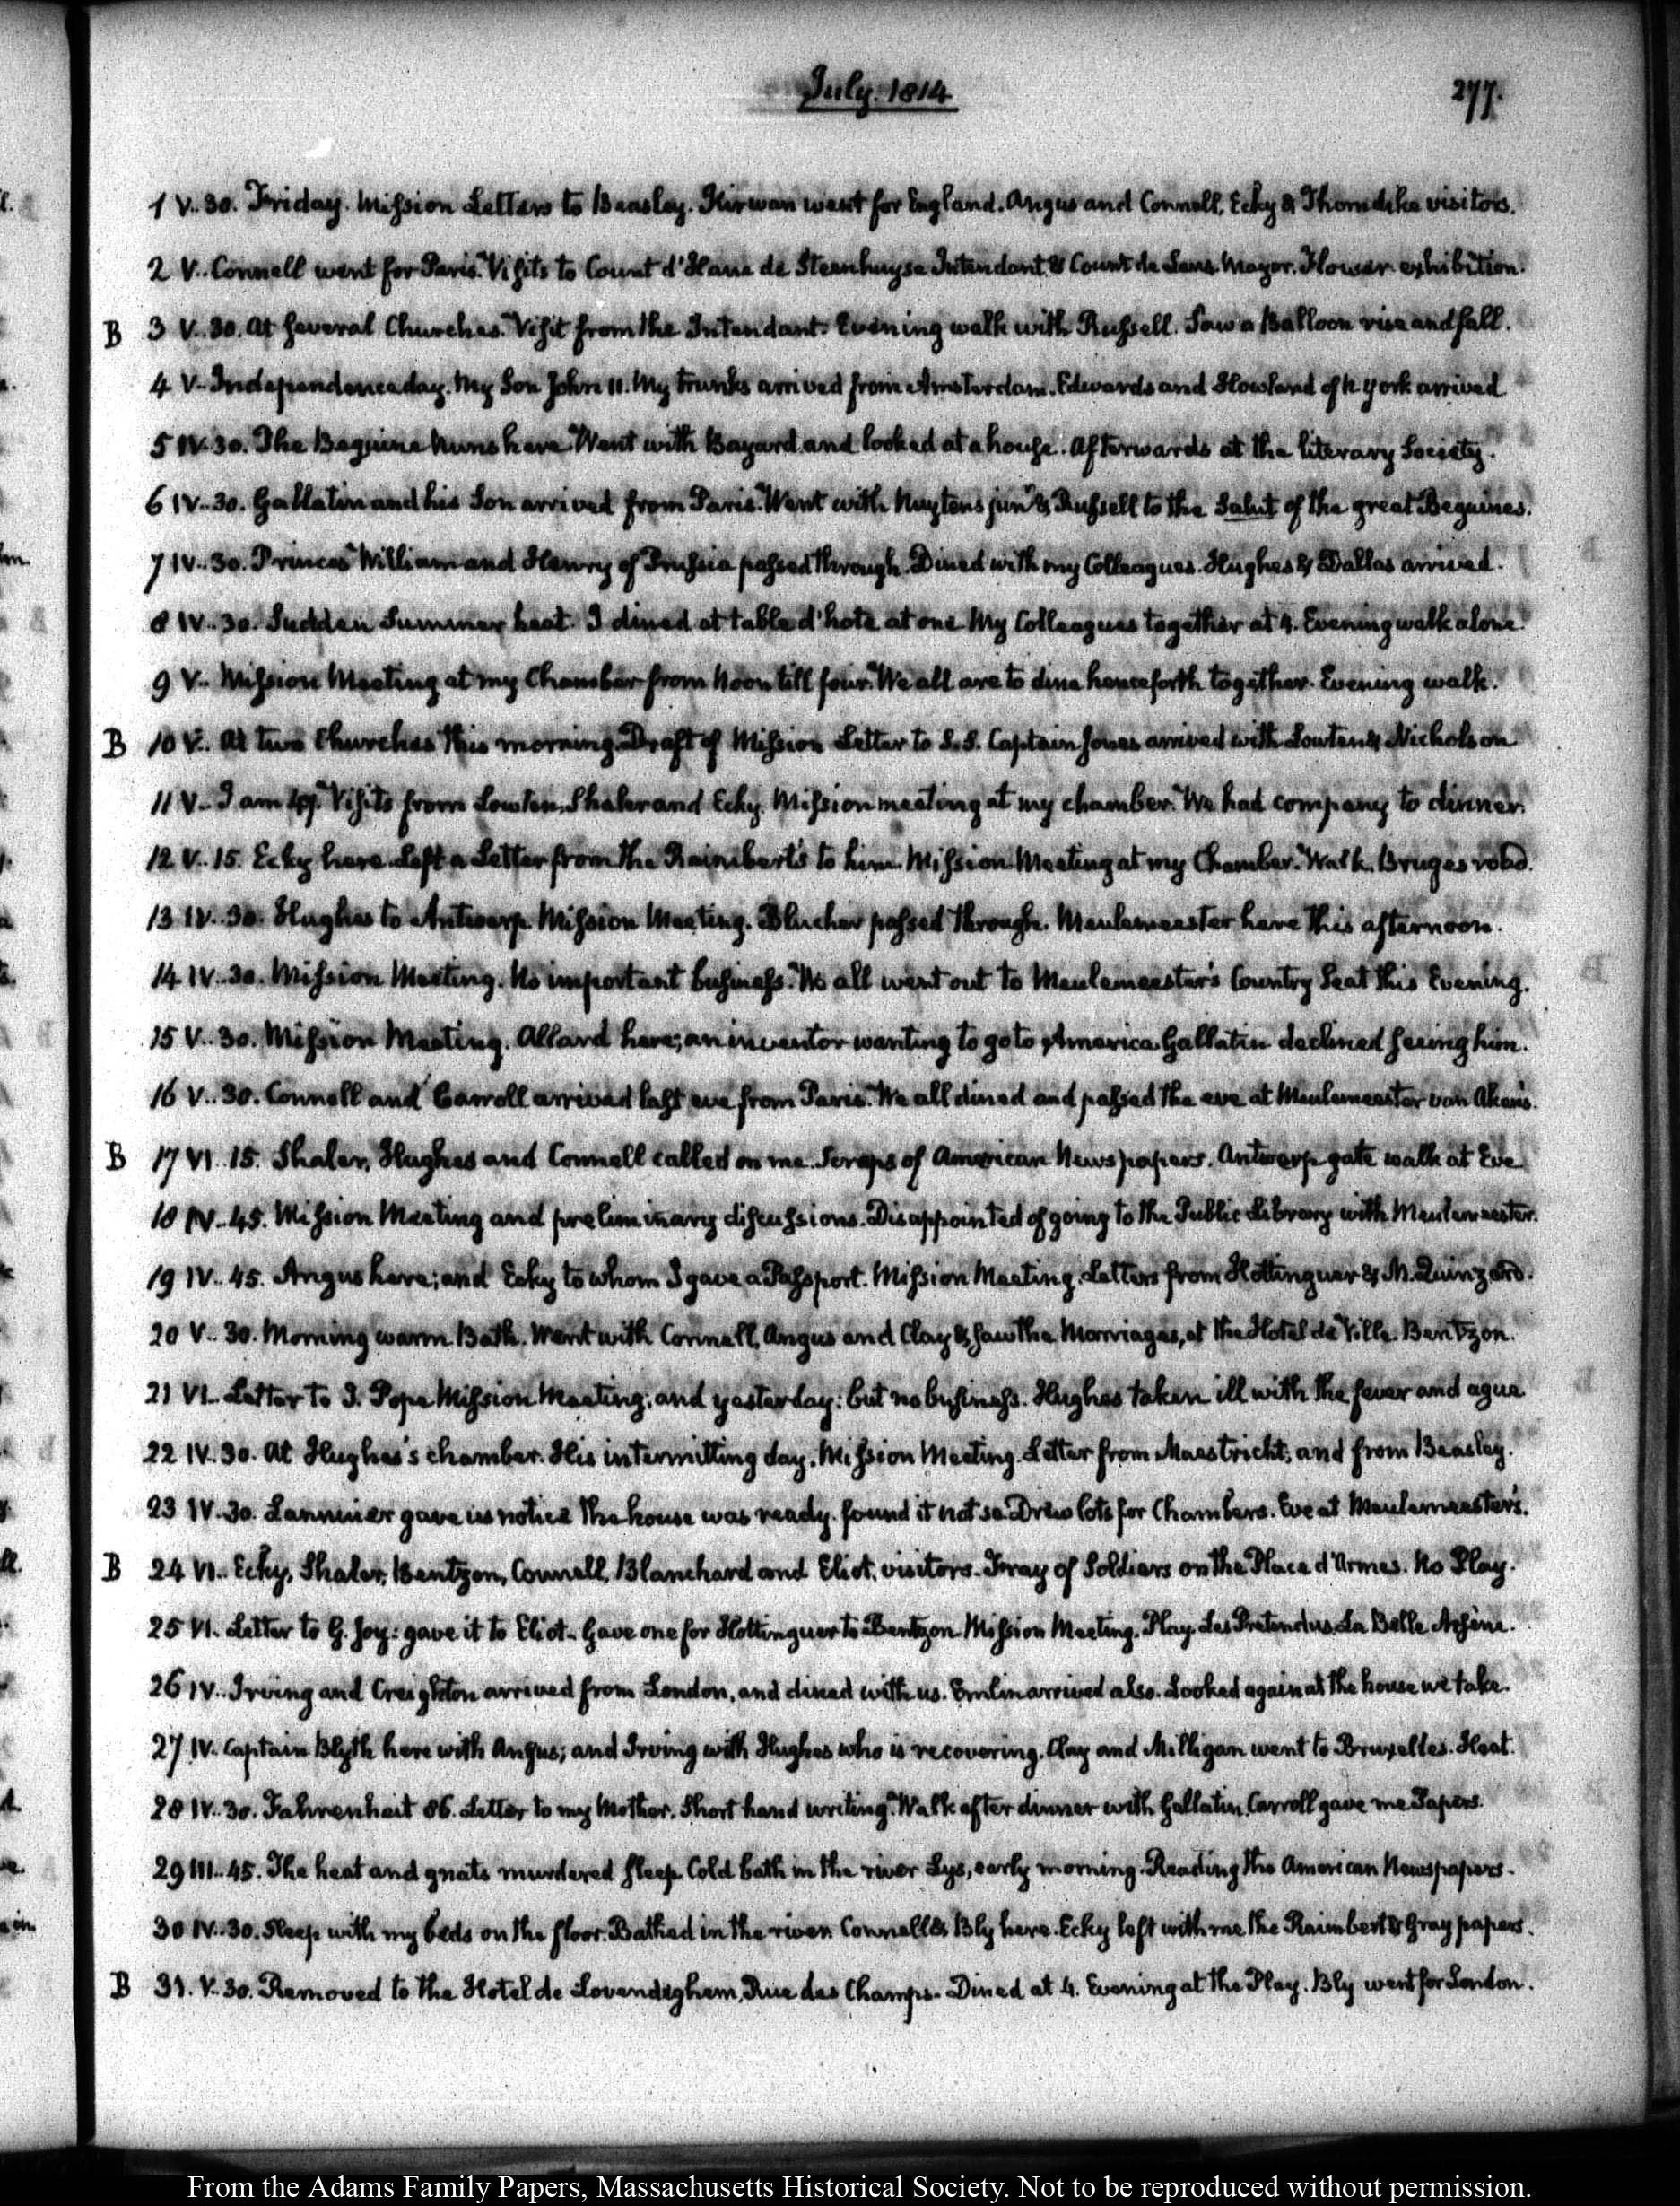 July. 1814
277.
1 V..30. Friday. Mission Letters to Beasley. Kirwan went for England. Angus and Connell, Ecky & Thorndike visitors.
2 V.. Connell went for Paris. Visits to Count d'Hane de Steenhuyse Intendant & Count de Lens Mayor. Flower exhibition.
B 3 V..30. At several Churches. Visit from the Intendant. Evening walk with Russell. Saw a Balloon rise and fall.
4 V.. Independence day. My Son John 11. My trunks arrived from Amsterdam. Edwards and Howland of N. York arrived
5 IV.30. The Beguine Nuns here. Went with Bayard and looked at a house. Afterwards at the literary Society.
6 IV..30. Gallatin and his Son arrived from Paris. Went with Nuytens junr & Russell to the Salut of the great Beguines.
7 IV..30. Princes William and Henry of Prussia passed through. Dined with my Colleagues. Hughes & Dallas arrived.
8 IV..30. Sudden Summer heat. I dined at table d'hote at one. My Colleagues together at 4. Evening walk alone.
9 V.. Mission Meeting at my Chamber from Noon till four. We all are to dine henceforth together. Evening walk.
B 10 V.. At two Churches this morning. Draft of Mission Letter to S.S. Captain Jones arrived with Lowten & Nicholson
11 V.. I am 47. Visits from Lowten, Shaler and Ecky. Mission meeting at my chamber. We had company to dinner.
12 V..15. Ecky here. Left a Letter from the Raimbert's to him. Mission Meeting at my Chamber. Walk. Bruges road.
13 IV..30. Hughes to Antwerp. Mission Meeting. Blucher passed through. Meulemeester here this afternoon.
14 IV..30. Mission Meeting. No important business. We all went out to Meulemeester's Country Seat this Evening.
15 V..30. Mission Meeting. Allard here; an inventor wanting to go to America. Gallatin declined seeing him.
16 V..30. Connell and Carroll arrived last eve from Paris. We all dined and passed the eve at Meulemeester van Aken's.
B 17 VI..15. Shaler, Hughes and Connell called on me. Scraps of American Newspapers. Antwerp gate walk at Eve
18 IV..45. Mission Meeting and preliminary discussions. Disappointed of going to the Public Library with Meulemeester.
19 IV..45. Angus here; and Ecky to whom I gave a Passport. Mission Meeting. Letters from Hottinguer & M. Quinzard.
20 V..30. Morning warm Bath. Went with Connell, Angus and Clay & saw the Marriages, at the Hotel de Ville. Bentzon.
21 VI.. Letter to I. Pope Mission Meeting; and yesterday: but no business. Hughes taken ill with the fever and ague
22 IV..30. At Hughes's chamber. His intermitting day. Mission Meeting. Letter from Maestricht; and from Beasley.
23 IV.30. Lannuier gave us notice the house was ready. found it not so. Drew lots for Chambers. Eve at Meulemeester's.
B 24 VI.. Ecky, Shaler, Bentzon, Connell, Blanchard and Eliot, visitors. Fray of Soldiers on the Place d'Armes. No Play.
25 VI. Letter to G. Joy: gave it to Eliot. Gave one for Hottinguer to Bentzon Mission Meeting. Play. Les Pretendus. La Belle Arsène.
26 IV.. Irving and Creighton arrived from London, and dined with us. Emlin arrived also. Looked again at the house we take.
27 IV. Captain Blyth here with Angus; and Irving with Hughes who is recovering. Clay and Milligan went to Bruxelles. Heat.
28 IV.30. Fahrenheit 86. Letter to my Mother. Short hand writing. Walk after dinner with Gallatin. Carroll gave me Papers.
29 III..45. The heat and gnats murdered sleep. Cold bath in the river Lys, early morning. Reading the American Newspapers.
30 IV..30. Sleep with my beds on the floor. Bathed in the river. Connell & Bly here. Ecky left with me the Raimbert & Gray papers.
B 31. V.30. Removed to the Hotel de Lovendeghem, Rue des Champs. Dined at 4. Evening at the Play. Bly went for London.
From the Adams Family Papers, Massachusetts Historical Society. Not to be reproduced without permission.